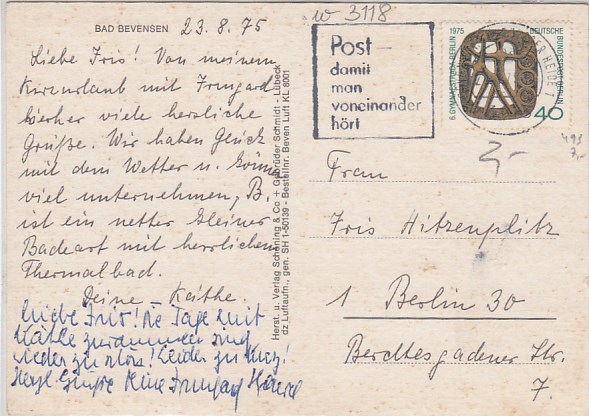 BAD BEVENSEN 23.8.75
Liebe Iris! Von meinem
Kurzurlaub mit Irmgard
vorher viele herzliche
Grüße. Wir haben Glück
mit dem Wetter u. können
viel unternehmen, B.
ist ein netter kleiner
Badeort mit herrlichem
Thermalbad.
Deine Käthe.
Liebe Iris! Die Tage mit
Käthe zusammen sind
wieder zu Leider zu kurz!
Herzl. Grüße Deine Irmgard
Herst. u. Verlag Schöning & Co + Gebrüder Schmidt - Lübeck
dz Luftaufn., gen. SH 1-50139 - Bestellnr. Beven Luft KL 8001
w 3118
Post -
damit
man
voneinander
hört
6. GYMNAESTRADA BERLIN 1975
DEUTSCHE BUNDESPOST BERLIN
40
DER HEIDE 1
2,-
Frau
Iris Hitzenplitz
1 Berlin 30
Berchtesgadener Str.
7.